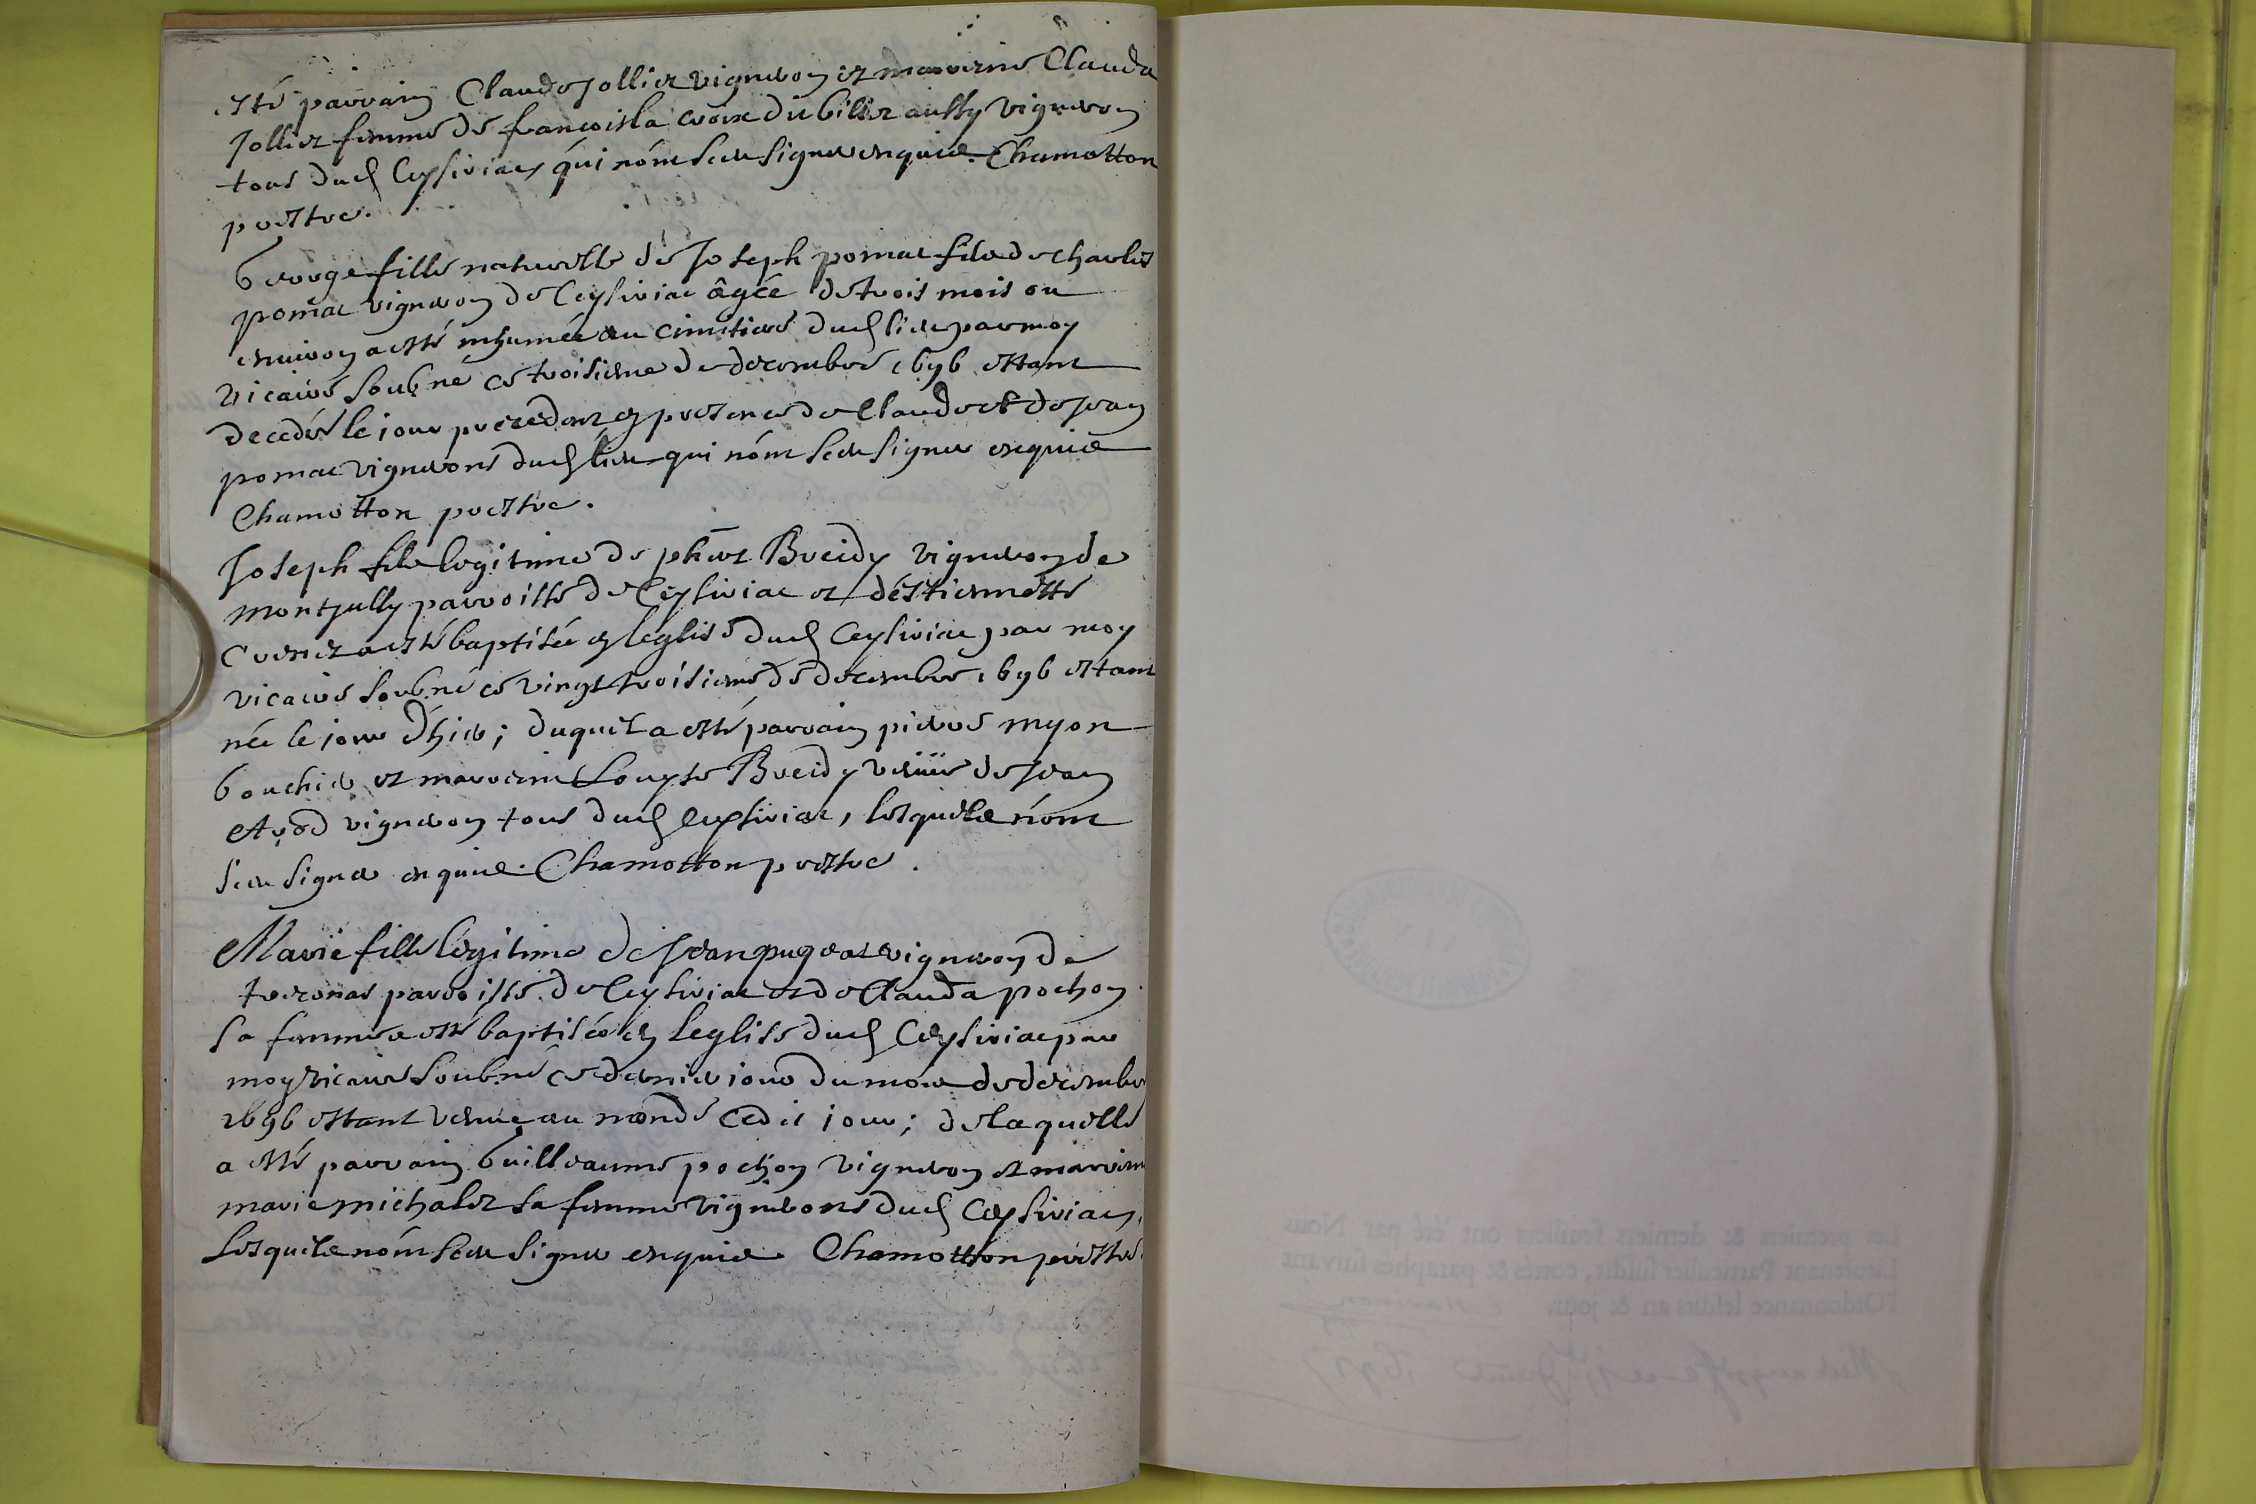 esté parrain Claude Jollier vigneron et marrine Clauda
Jollier femme de francois la croix dit billier aussy vigneron
tous dud Ceysiriacz qui n'ont sceu signer enquis. Chamotton
prestre.
George fille naturelle de Joseph pomat fils de charles
pomat vigneron de Ceysiriac âgée de trois mois ou
environ a esté inhumée au cimetiere dud lieu par moy
vicaire soubné ce troisieme de decembre 1696 estant
decedée le jour precedent en presence de Claude et de Jean
pomat vignerons dud lieu qui n'ont sceu signer enquis
Chamotton prestre.
Joseph fils legitime de phert Breidy vigneron de
montjully parroisse de Ceysiriac et d'éstiennette
Cuenet a esté baptisée en leglise dud Ceysiriac par moy
vicaire soubné ce vingt troisieme de decembre 1696 estant
née le jour d'hier; duquel a esté parrain pierre myon
bouchier et marrine Louyse Breidy veuve de Jean
vigneron tous dud Ceysiriac, lesquels n'ont
sceu signer enquis. Chamotton prestre.
Marie fille legitime de Jean pugeat vigneron de
terconas parroisse de Ceysiriac et de Clauda pochon
sa femme a esté baptisée en leglise dud Ceysiriac par
moy vicaire soubné ce dernier jour du mois de decembre
1696 estant venue au monde cedit jour; de laquelle
a esté parrain Guilleaume pochon vigneron et marrine
marie michalet sa femme vignerons dud Ceysiriacz,
Lesquels n'ont sceu signer enquis. Chamotton prestre.
Les premier & derniers feuillets ont été par Nous
Lieutenant Particulier susdit, cottés & paraphés suivant
l'Ordonnance lesdits an & jour.